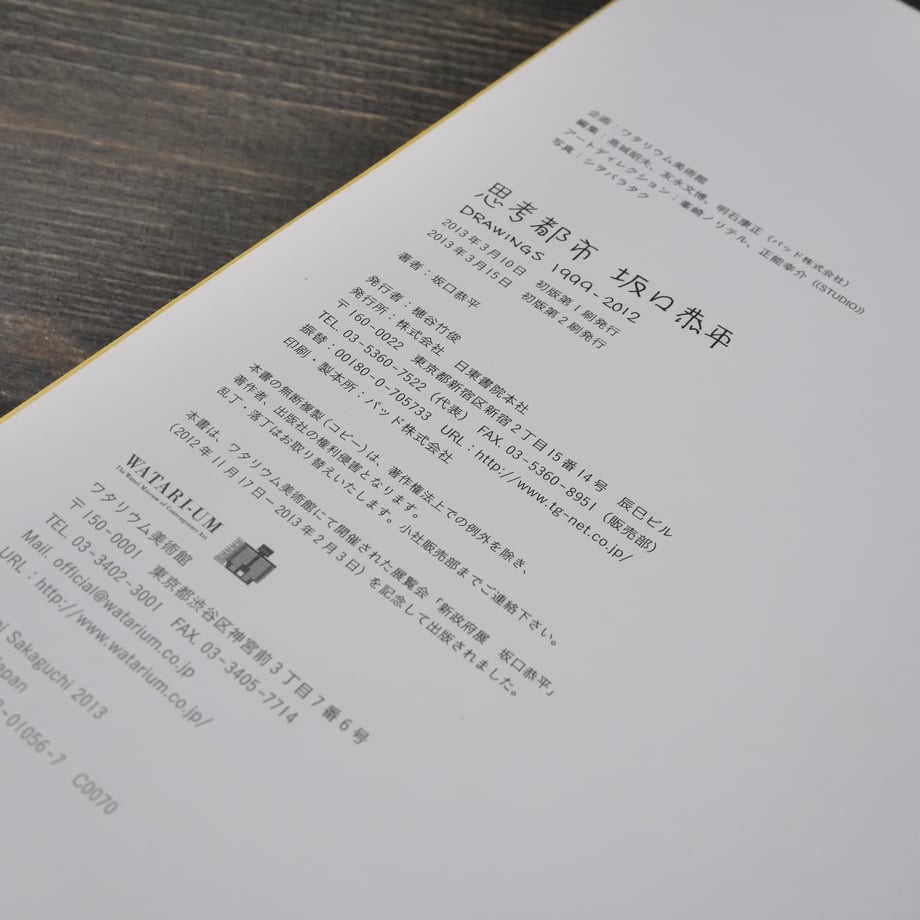 企画：ワタリウム美術館
編集：高城昭夫、友永文博、明石康正（パッド株式会社）
アートディレクション：峯崎ノリテル、正能幸介（(STUDIO)）
写真：シヲバラタク
思考都市 坂口恭平
DRAWINGS 1999-2012
2013年3月10日 初版第1刷発行
2013年3月15日 初版第2刷発行
著者：坂口恭平
発行者：穂谷竹俊
発行所：株式会社 日東書院本社
〒160-0022 東京都新宿区新宿2丁目15番14号 辰巳ビル
TEL 03-5360-7522（代表） FAX. 03-5360-8951（販売部）
振替：00180-0-705733 URL：http://www.tg-net.co.jp/
印刷・製本所：パッド株式会社
本書の無断複製（コピー）は、著作権法上での例外を除き、
著作者、出版社の権利侵害となります。
乱丁・落丁はお取り替えいたします。小社販売部までご連絡下さい。
本書は、ワタリウム美術館にて開催された展覧会「新政府展 坂口恭平」
（2012年11月17日－2013年2月3日）を記念して出版されました。
WATARI-UM
The Watari Museum of Contemporary Art
ワタリウム美術館
〒150-0001 東京都渋谷区神宮前3丁目7番6号
TEL 03-3402-3001 FAX. 03-3405-7714
Mail. official@watarium.co.jp
URL：http://www.watarium.co.jp/
Sakaguchi 2013
Japan
-01056-7 C0070